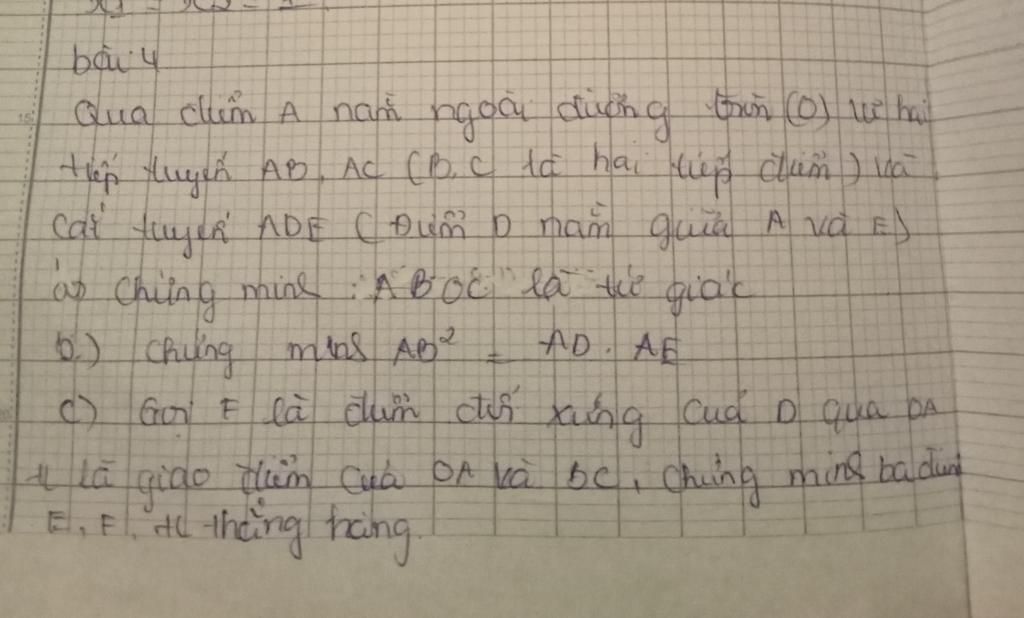 bài 4
Qua điểm A nằm ngoài đường tròn (O) vẽ hai
tiếp tuyến AB, AC (B, C là hai tiếp điểm) và
cát tuyến ADE (Điểm D nằm giữa A và E)
a) Chứng minh : "ABOC" là tứ giác
b) Chứng minh AB² = AD. AE
c) Gọi F là điểm đối xứng của D qua OA
H là giao điểm của OA và BC, chứng minh ba điểm
E, F, H thẳng hàng.